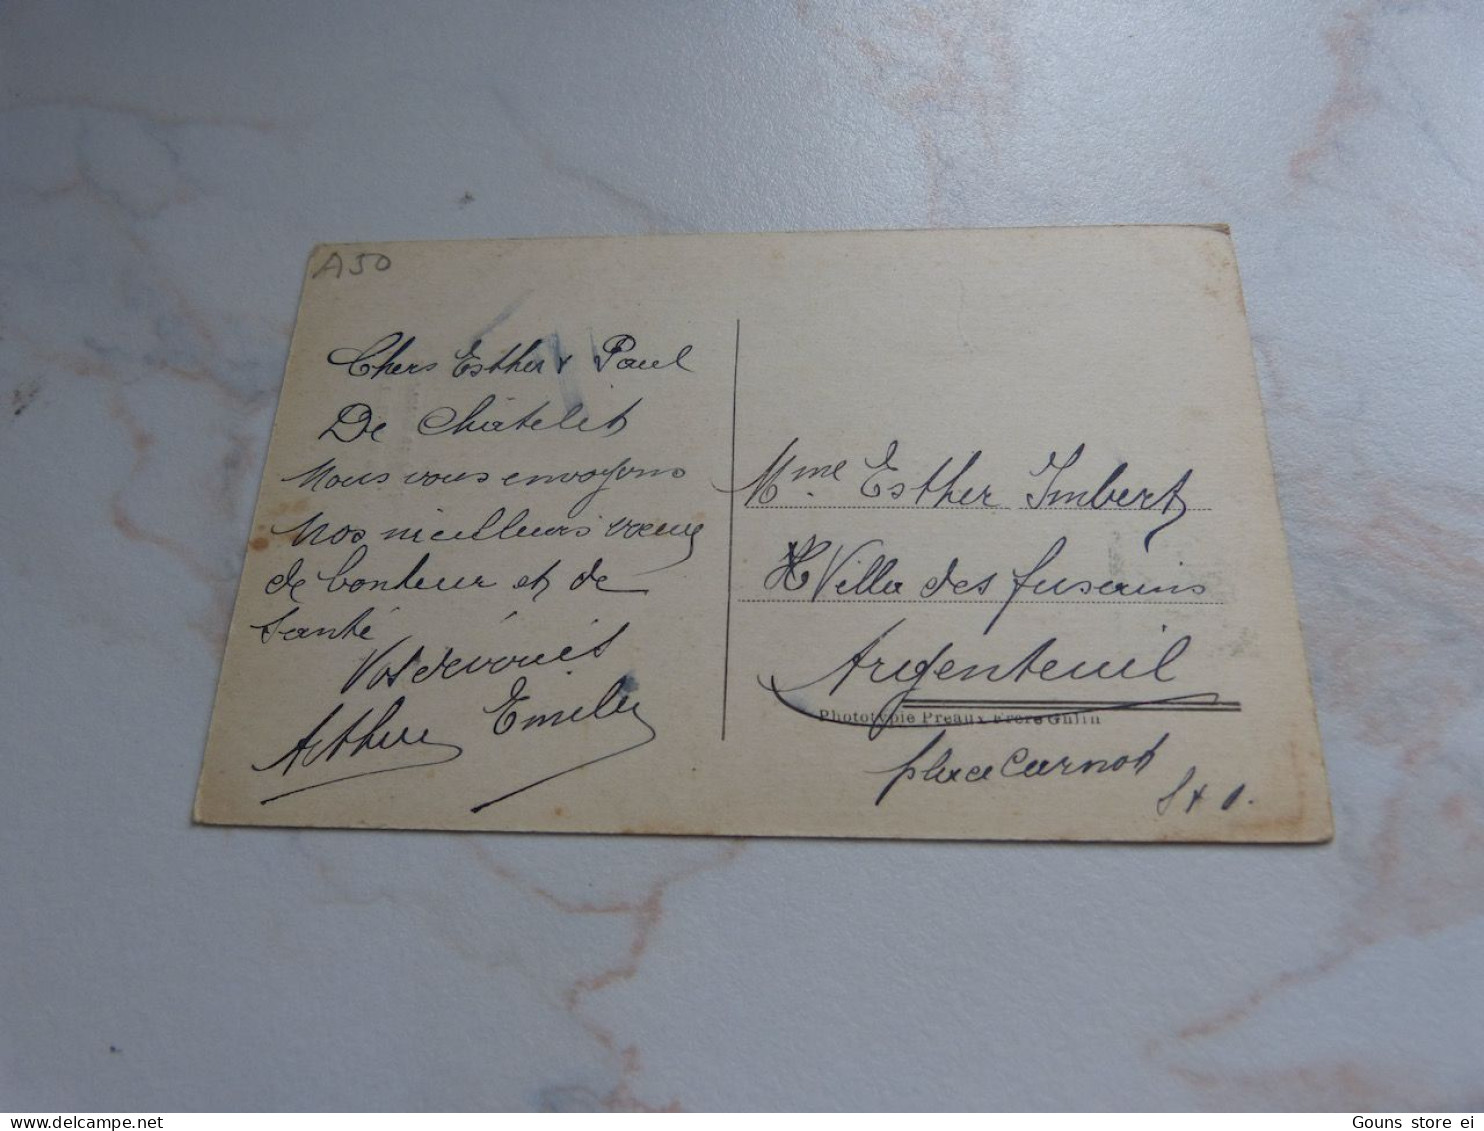 A50
Chers Esther & Paul
De Châtelet
Nous vous envoyons
Nos meilleurs vœux
de bonheur et de
Santé
Vos dévoués
Arthur Emilie
Mme Esther Imbert
Villa des fusains
Argenteuil
Phototypie Preaux Frère Ghlin
place Carnot
S & O.
Gouns store ei